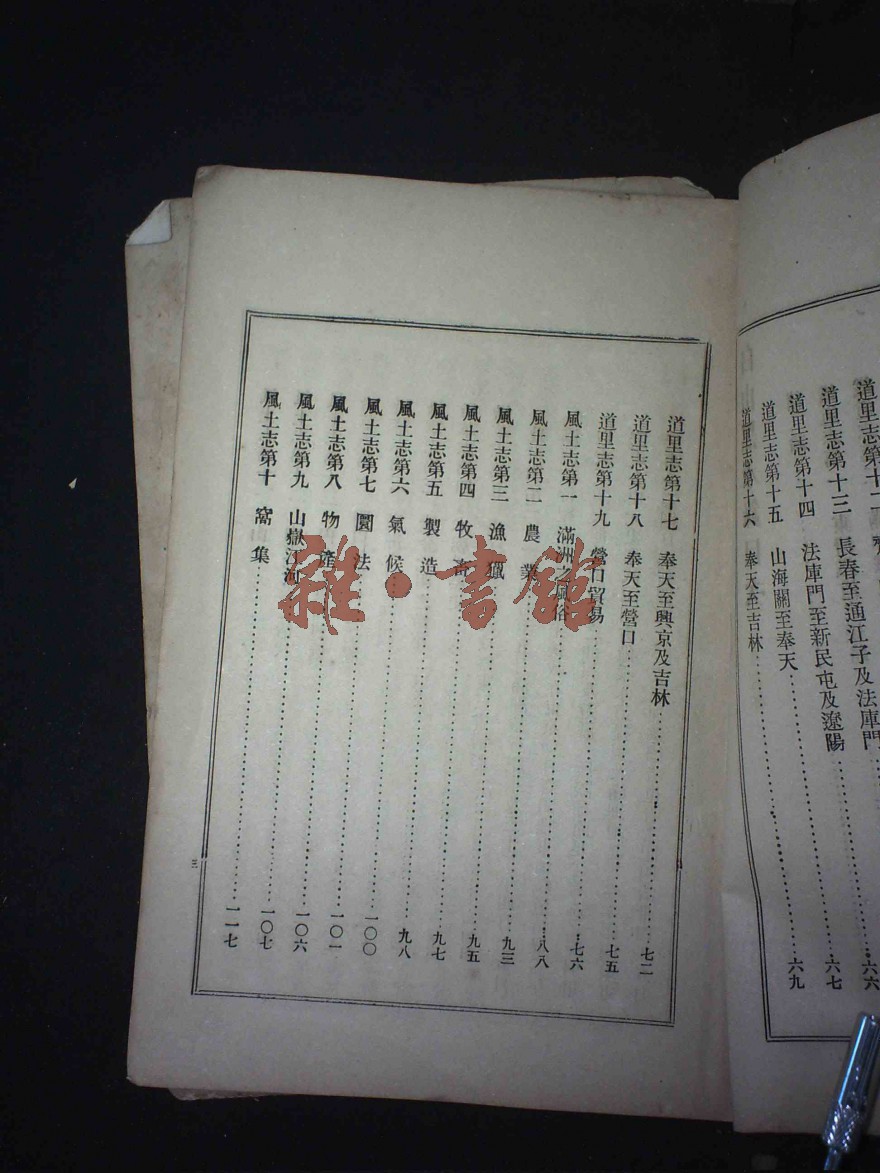 道里志第十二
道里志第十三 長春至通江子及法庫門……六六
道里志第十四 法庫門至新民屯及遼陽……六七
道里志第十五 山海關至奉天……六九
道里志第十六 奉天至吉林……
道里志第十七 奉天至興京及吉林……七二
道里志第十八 奉天至營口……七五
道里志第十九 營口貿易……七六
風土志第一 滿洲之風俗……八八
風土志第二 農業……九三
風土志第三 漁獵……九五
風土志第四 牧畜……九七
風土志第五 製造……九八
風土志第六 氣候……一〇〇
風土志第七 圜法……一〇一
風土志第八 物產……一〇六
風土志第九 山嶽江河……一〇七
風土志第十 窩集……一一七
三
雜·書館